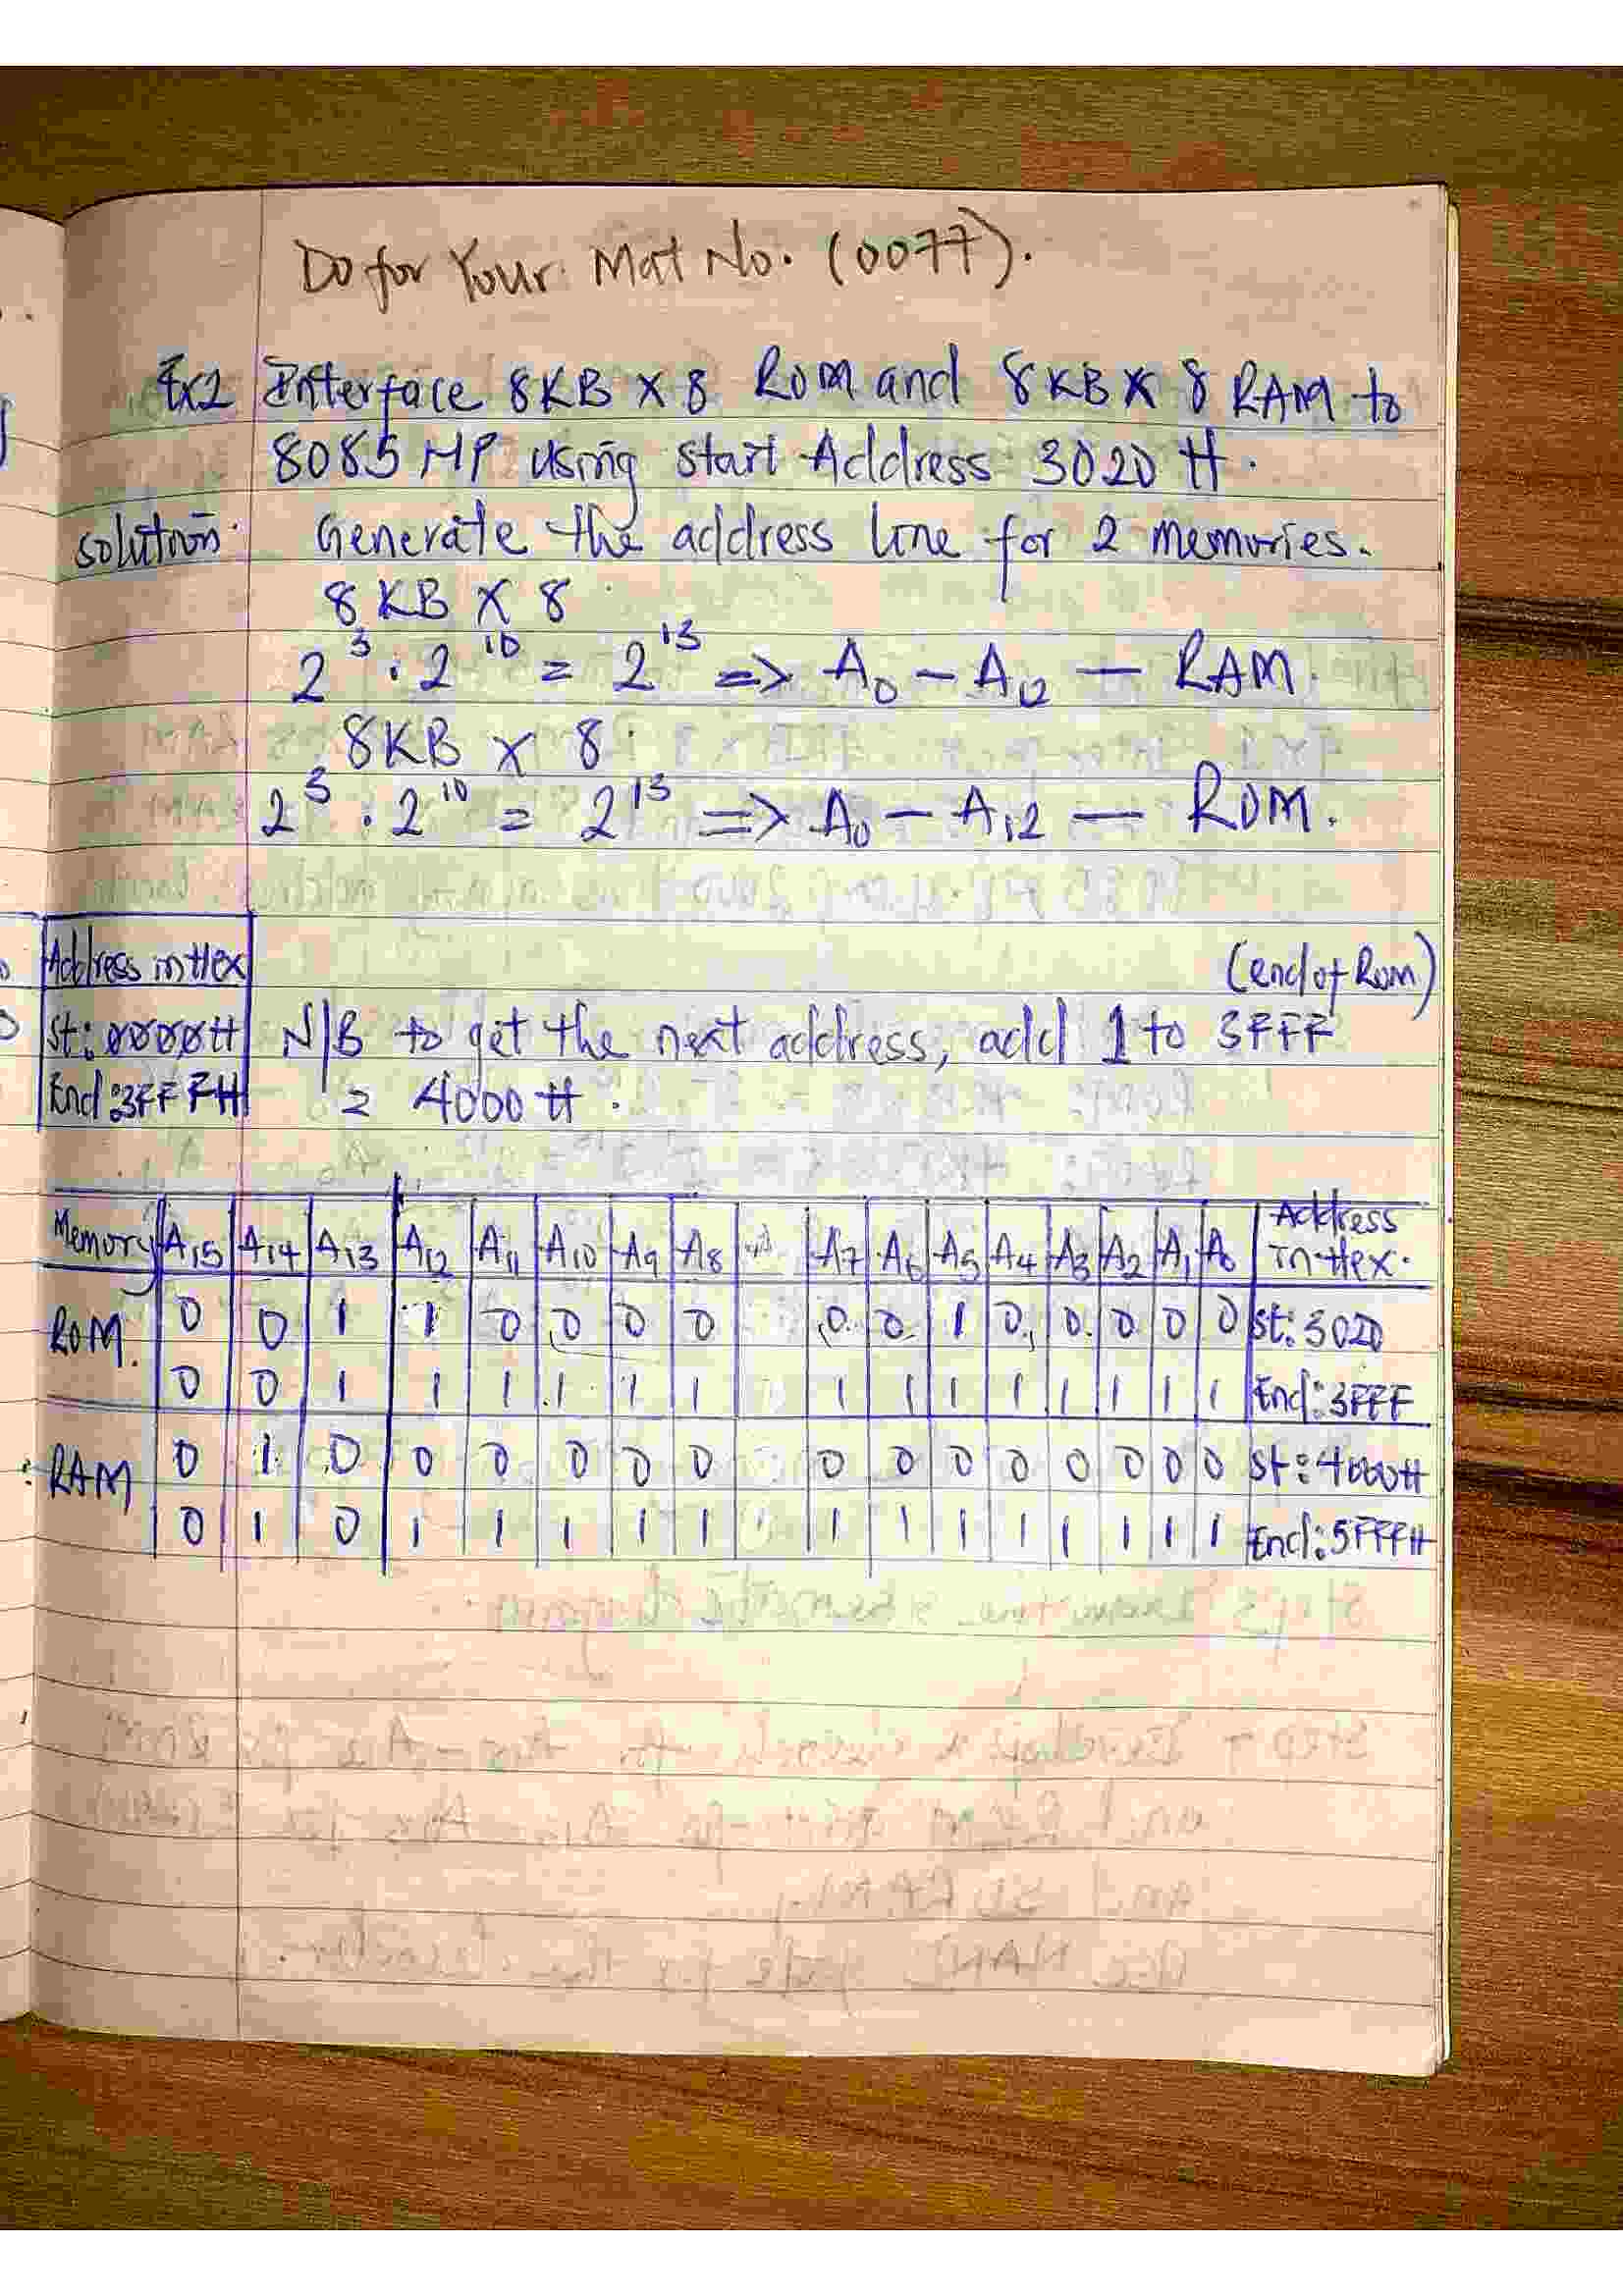 Do for Your Mat No. (0077).
Ex2 Interface 8KB X 8 ROM and 8KB X 8 RAM to
8085 MP using start Address 3020 H.
Solution: Generate the address line for 2 memories.
8KB X 8
2^3 . 2^10 = 2^13 => A0 - A12 - RAM.
8KB X 8
2^3 . 2^10 = 2^13 => A0 - A12 - ROM.
Address in Hex
St: 0000H
End: 3FFFH
(end of Rom)
N/B to get the next address, add 1 to 3FFF
= 4000H.
Memory A15 A14 A13 A12 A11 A10 A9 A8 A7 A6 A5 A4 A3 A2 A1 A0 Address in Hex.
ROM. 0 0 1 1 0 0 0 0 0 0 1 0 0 0 0 0 St: 3020
0 0 1 1 1 1 1 1 1 1 1 1 1 1 1 1 End: 3FFF
RAM 0 1 0 0 0 0 0 0 0 0 0 0 0 0 0 0 St: 4000H
0 1 0 1 1 1 1 1 1 1 1 1 1 1 1 1 End: 5FFFH